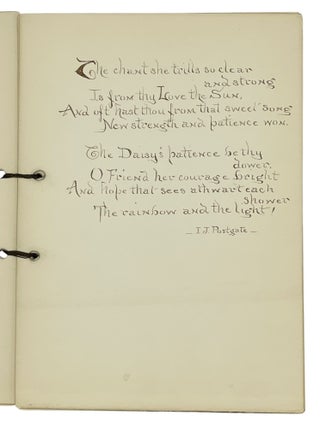 The chant she trills so clear
and strong
Is from thy Love the Sun,
And oft hast thou from that sweet song
New strength and patience won.
The Daisy's patience be thy
dower.
O Friend her courage bright
And hope that sees athwart each
shower
The rainbow and the light!
— I. J. Postgate —